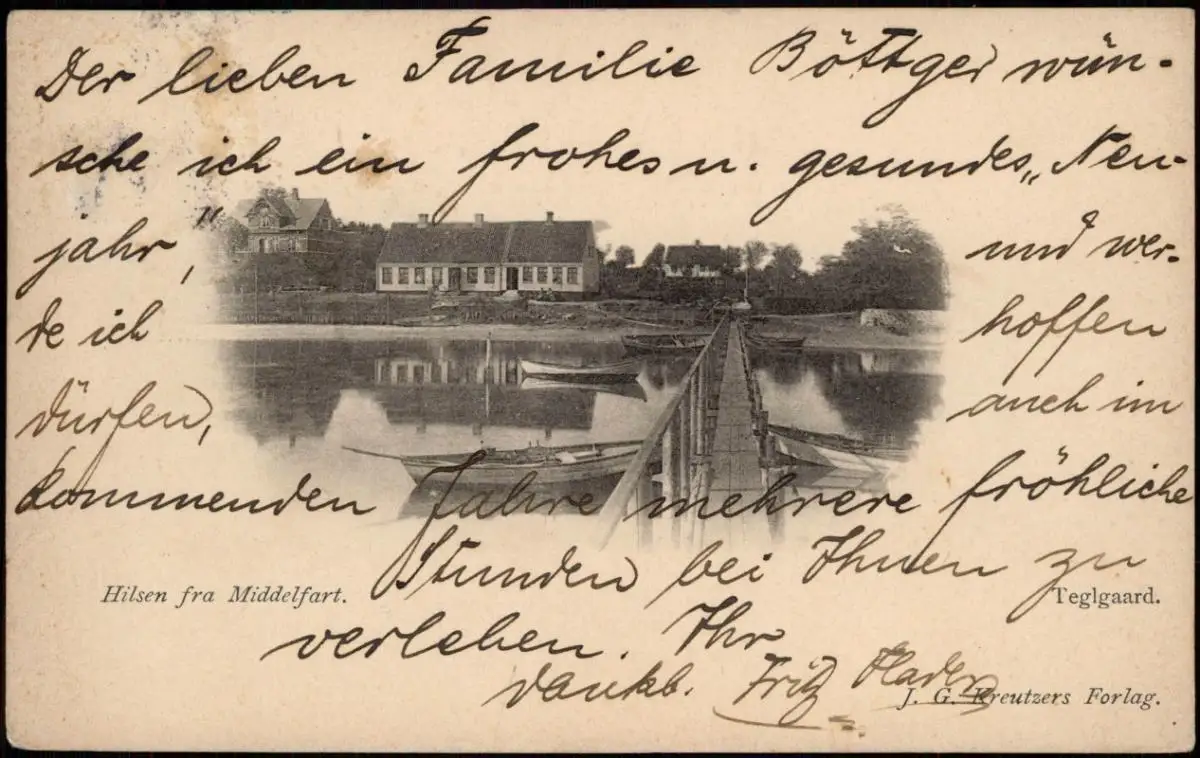 Der lieben Familie Böttger wün-
sche ich ein frohes u. gesundes „Neu-
jahr“, und wer-
de ich hoffen
dürfen, auch im
kommenden Jahre mehrere fröhliche
Stunden bei Ihnen zu
verleben. Ihr
dankb. Fritz
Hilsen fra Middelfart.
Teglgaard.
J. G. Kreutzers Forlag.